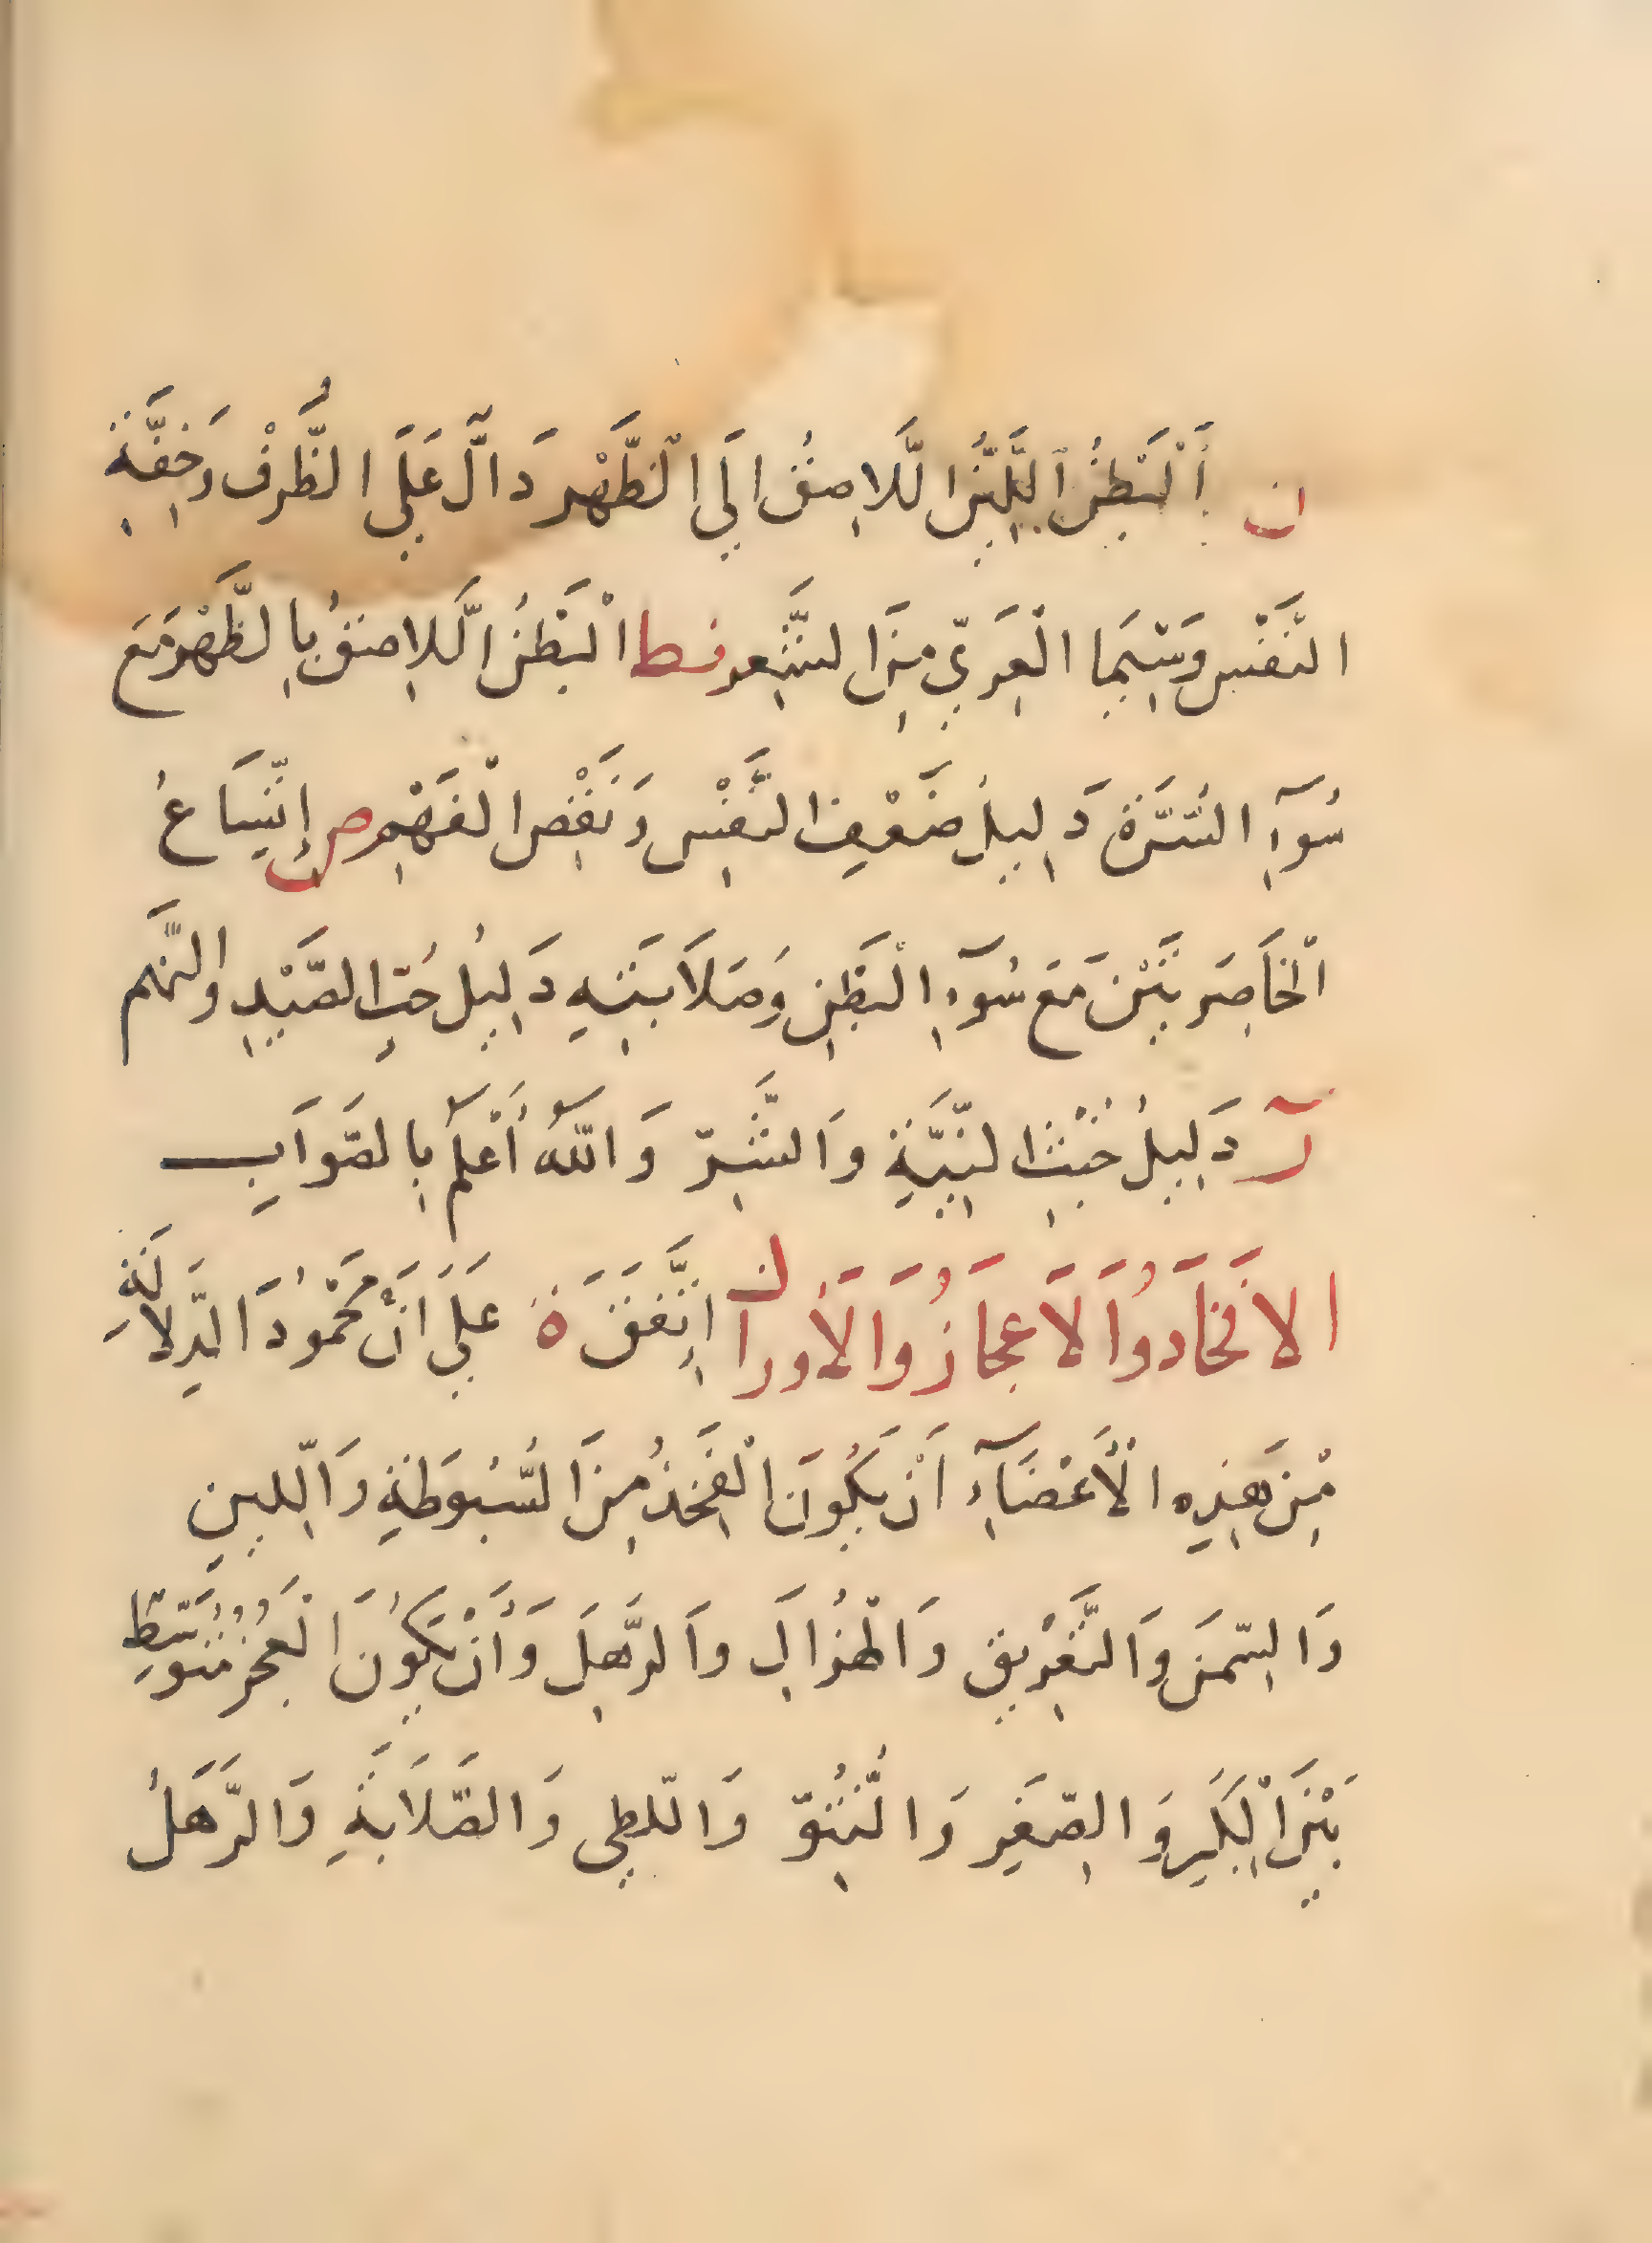 ن اَلْبَطْنُ اللَّيِّنُ اللَّاصِقُ اِلَي الْظَّهْرِ دَآلّ عَلَي الظَّرْفُ وَخِفَّةِ
النَّفْسِ وَسِيَّمَا الْعَرِيّ مِنَ الشَّعِر فط الْبَطْنُ اللَّاصِقُ بِالظَّهْرِ مَعَ
سُوَآءِ السُّرَّةِ دَلِيلُ ضَعْفِ النَّفْسِ وَنَقْصِ الْفَهْمِ ص ن اِتِّسَاعُ
الْخَاصِرَتَيْنِ مَعَ سُوَآءِ الْبَطْنِ وَصَلَابَتِهِ دَلِيلُ حُبِّ الصَّيْدِ والنَّهم
رَ دَلِيلُ خُبْثِ النِّيَّةِ وَالشَّرِّ وَاللهُ اَعْلَمُ بِالصَّوَابِ
الافَخَاَدُ وَالاَعجَازُ وَالاَوراك اِتَّفَقَ ة عَلَي اَنَّ مَحْمُودَ الدِّلالَةِ
مِنْ هَذِهِ الْأَعْضَآءِ اَنْ يَكُونَ الْفَخِذُ مِنَ السُّبُوطَةِ وَاللّيِنِ
وَالسِّمَنِ وَالتَّعْرِيقِ وَالْهُزَالِ وَالرَّهلِ وَاَنْ يَكُونَ الْعَجُزُ مُتَوَسِّطِ
بَيْنَ الْكِبَرِ وَالصِّغَرِ وَالنُّتُوِّ وَاللّطِي وَالصَّلَابَةِ وَالرَّهَلُ